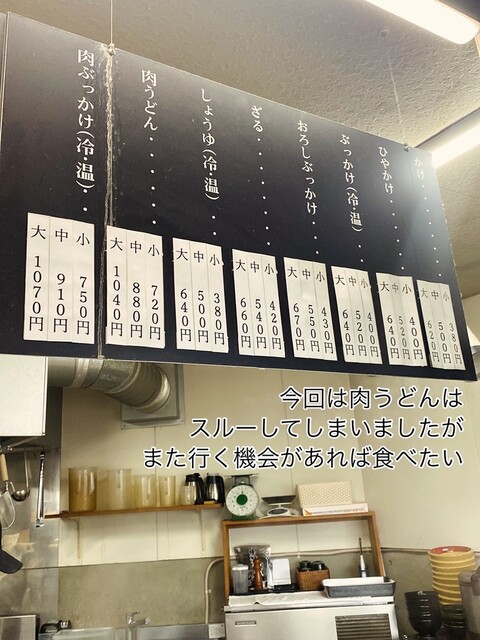 かけ・・・・・
小 380円
中 500円
大 620円
ひやかけ・・・・
小 400円
中 520円
大 640円
ぶっかけ(冷・温)・・
小 400円
中 520円
大 640円
おろしぶっかけ・・・
小 430円
中 550円
大 670円
ざる・・・・・・
小 420円
中 540円
大 660円
しょうゆ(冷・温)・・
小 380円
中 500円
大 640円
肉うどん・・・・・
小 720円
中 880円
大 1040円
肉ぶっかけ(冷・温)・・
小 750円
中 910円
大 1070円
今回は肉うどんは
スルーしてしまいましたが
また行く機会があれば食べたい